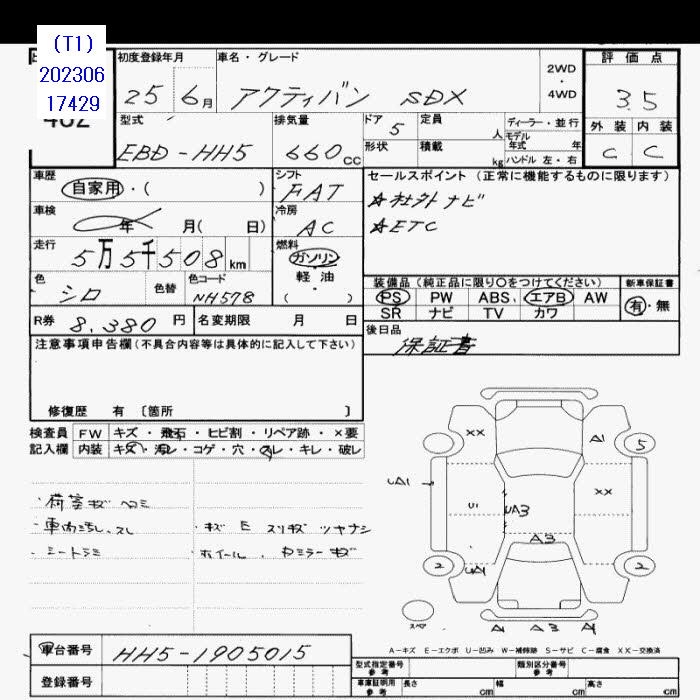 (T1)
202306
17429
402
初度登録年月
25 6月
車名・グレード
アクティバン SDX
2WD
・
4WD
評価点
3.5
外装 内装
C C
型式
EBD-HH5
排気量
660cc
ドア 5
定員 人
形状
積載 kg
ディーラー・並行
モデル年式 年式
ハンドル 左・右
車歴
自家用・( )
シフト
FAT
セールスポイント (正常に機能するものに限ります)
☆社外ナビ
☆ETC
車検
年 月( 日)
冷房
AC
走行
5万5千508km
燃料
ガソリン
軽・油
( )
色
シロ
色替
色コード
NH578
装備品 (純正品に限り〇をつけてください)
PS PW ABS. エアB AW
SR ナビ TV カワ
新車保証書
有・無
R券 8,380円
名変期限 月 日
後日品
保証書
注意事項申告欄(不具合内容等は具体的に記入して下さい)
修復歴 有 〔箇所 〕
検査員 FW キズ・飛石・ヒビ割・リペア跡・×要
記入欄 内装 キズ・汚レ・コゲ・穴・スレ・キレ・破レ
・荷室キズ ヘコミ
・車内汚し、スレ
・シートシミ
・キズ E スリキズ ツギナシ
ホイール、Dミラーキズ
XX
A1
5
UA1
U1
UA3
XX
A3
2
UA1
2
スペア
A1 A3 A1
A-キズ E-エクボ U-凹み W-補修跡 S-サビ C-腐食 XX-交換済
車台番号 HH5-1905015
登録番号
型式指定番号 参考
類別区分番号 参考
車庫証明用 参考
長さ cm 幅 cm 高さ cm